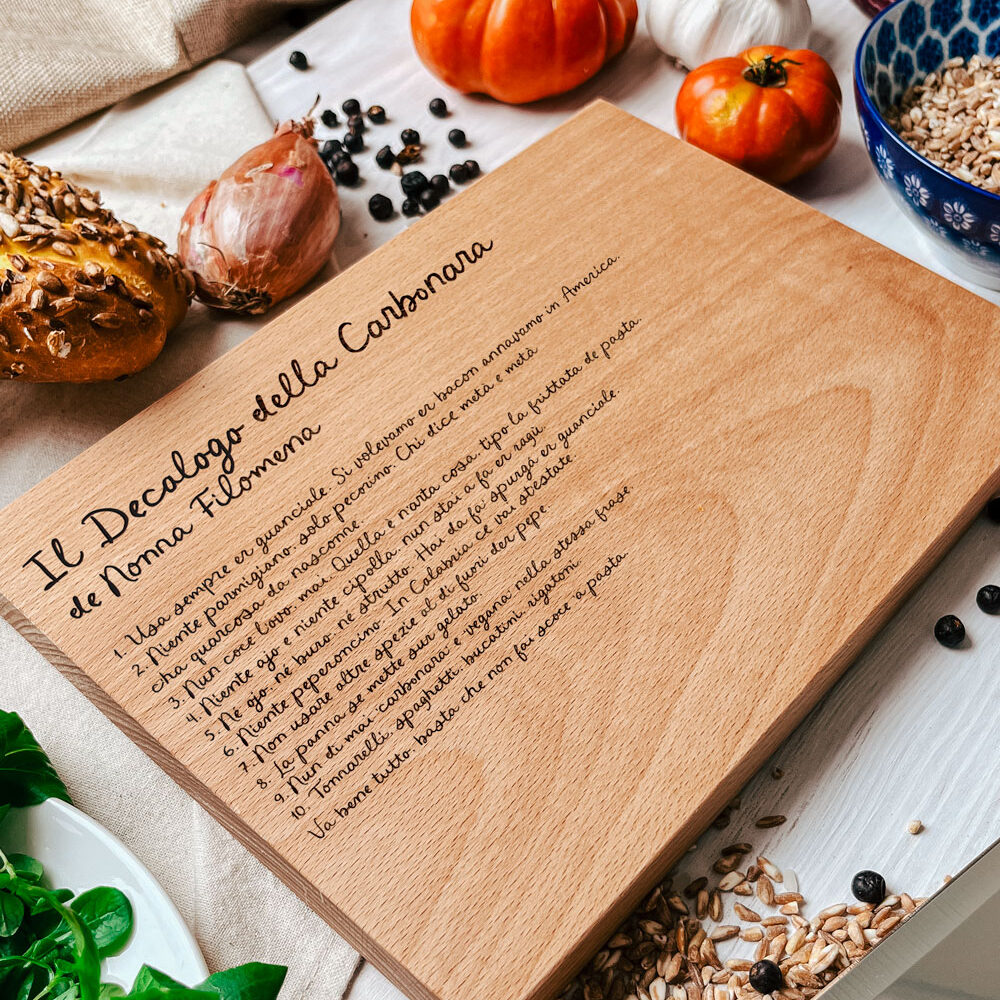 Il Decalogo della Carbonara
de Nonna Filomena
1. Usa sempre er guanciale. Si volevamo er bacon annavamo in America.
2. Niente parmigiano, solo pecorino. Chi dice metà e metà
cha quarcosa da nasconne.
3. Nun coce l'ovo, mai. Quella è n'arta cosa, tipo la frittata de pasta.
4. Niente ajo e niente cipolla, nun stai a fa er ragù.
5. Né ojo, né buro, né strutto. Hai da fà spurgá er guanciale.
6. Niente peperoncino. In Calabria ce vai st'estate.
7. Non usare altre spezie al di fuori der pepe.
8. La panna se mette sur gelato.
9. Nun di mai carbonara e vegana nella stessa frase.
10. Tonnarelli, spaghetti, bucatini, rigatoni.
Va bene tutto, basta che non fai scoce a pasta.